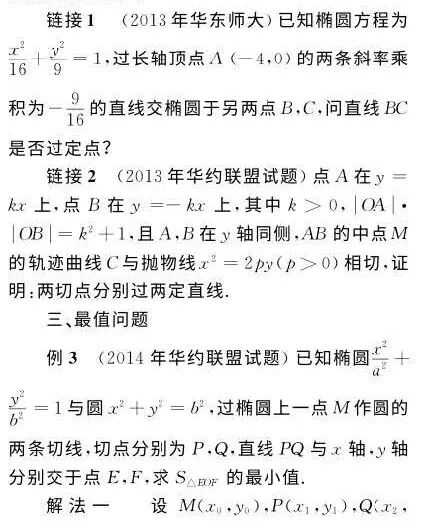 链接1 (2013年华东师大)已知椭圆方程为
x²/16 + y²/9 = 1,过长轴顶点A(-4,0)的两条斜率乘
积为-9/16的直线交椭圆于另两点B,C,问直线BC
是否过定点?
链接2 (2013年华约联盟试题)点A在y=
kx上,点B在y=-kx上,其中k>0,|OA|·
|OB|=k²+1,且A,B在y轴同侧,AB的中点M
的轨迹曲线C与抛物线x²=2py(p>0)相切,证
明:两切点分别过两定直线.
三、最值问题
例3 (2014年华约联盟试题)已知椭圆x²/a²+
y²/b²=1与圆x²+y²=b²,过椭圆上一点M作圆的
两条切线,切点分别为P,Q,直线PQ与x轴,y轴
分别交于点E,F,求S△EOF的最小值.
解法一 设M(x₀,y₀),P(x₁,y₁),Q(x₂,